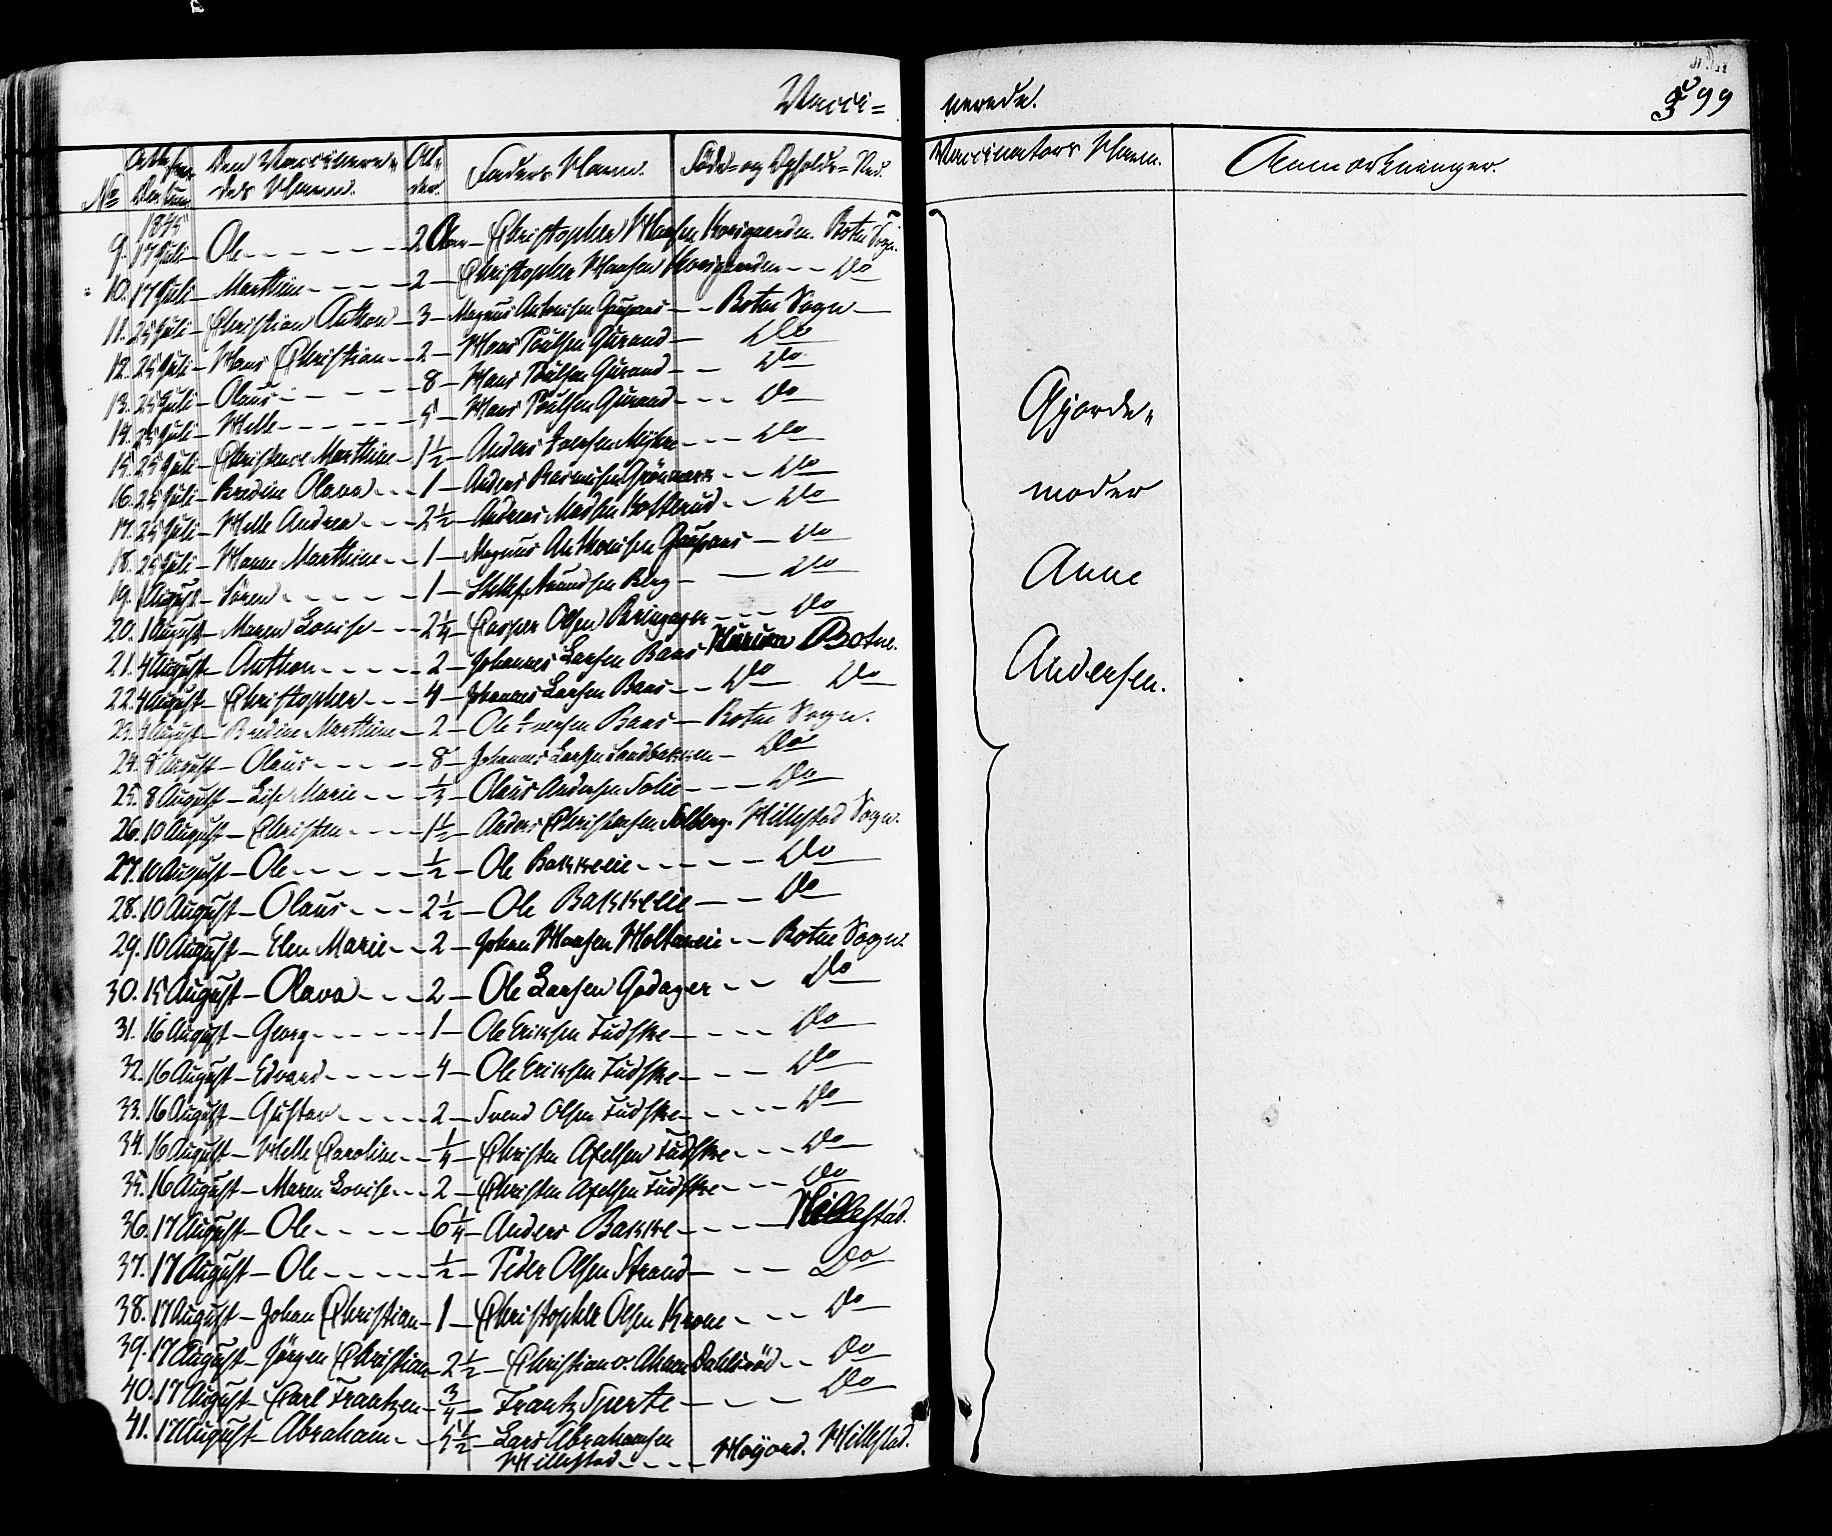 Vacci= nerede. 599
No Attestens Datum. Den Vaccinere= des Navn. Al= der. Faders Navn. Föde= og Opholds= Sted. Vaccinators Navn. Anmærkninger.
1845
9. 17 Juli – Ole – 2 Aar – Christopher Hansen Botne Sogn.
10. 17 Juli – Marthine – 2 – Christopher Hansen – Do
11. 25 Juli – Christian Anthon – 3 – Magnus Antonisen – Botne Sogn
12. 25 Juli – Hans Christian – 2 – Hans Poulsen – Do
13. 25 Juli – Olaus – 8 – Hans Poulsen – Do
14. 25 Juli – Helle – 5 – Hans Poulsen – Do
15. 25 Juli – Christence Marthine – 1½ – Anders Iversen – Do
16. 25 Juli – Bredine Olava – 1 – Anders Rasmusen – Do
17. 25 Juli – Helle Andrea – 2½ – Andreas Madsen – Do
18. 25 Juli – Hanne Marthine – 1 – Magnus Anthonisen – Do
19. 1 August – Sören – 1 – Berg – Do
20. 1 August – Maren Lovise – 2¼ – Casper Olsen – Do
21. 4 August – Anthon – 2 – Johannes Larsen Baas Hurum Botne.
22. 4 August – Christopher – 4 – Johannes Larsen Baas – Do Do
23. 4 August – Bredine Marthine – 2 – Ole Iversen Baas – Botne Sogn.
24. 8 August – Olaus – 8 – Johannes Larsen Sandbakken – Do
25. 8 August – Lise Marie – ⅓ – Olaus Andersen Solie – Do
26. 10 August – Christen – 1½ – Anders Christensen Solberg. Hillestad Sogn.
27. 10 August – Ole – ½ – Ole Bakkeeie – Do
28. 10 August – Olaus – 2½ – Ole Bakkeeie – Do
29. 10 August – Elen Marie – 2 – Johan Hansen – Botne Sogn.
30. 15 August – Olava – 2 – Ole Larsen Gedager – Do
31. 16 August – Georg – 1 – Ole Eriksen Fudske – Do
32. 16 August – Edvard – 4 – Ole Eriksen Fudske – Do
33. 16 August – Gustav – 2 – Svend Olsen Fudske – Do
34. 16 August – Helle Caroline – ¼ – Christen Axelsen Fudske – Do
35. 16 August – Maren Lovise – 2 – Christen Axelsen Fudske – Do
36. 17 August – Ole – 6¼ – Anders Bakke – Hillestad.
37. 17 August – Ole – ½ – Peder Olsen Strand – Do
38. 17 August – Johan Christian – 1 – Christopher Olsen – Do
39. 17 August – Jörgen Christian – 2½ – Christian – Do
40. 17 August – Carl Frantzen – ¾ – Frantz – Do
41. 17 August – Abraham – 5½ – Lars Abrahamsen
Hillestad – Höjord. Hillestad.
Gjorde=
moder
Anne
Andersen.